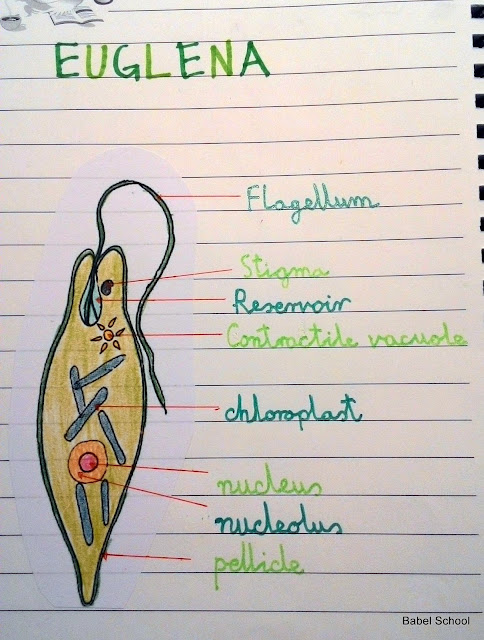 EUGLENA
Flagellum
Stigma
Reservoir
Contractile vacuole
chloroplast
nucleus
nucleolus
pellicle
Babel School